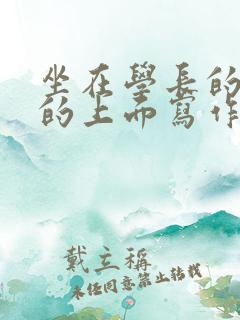 坐在學長的
的上而寫作
戴立稱
未任同意禁止转载